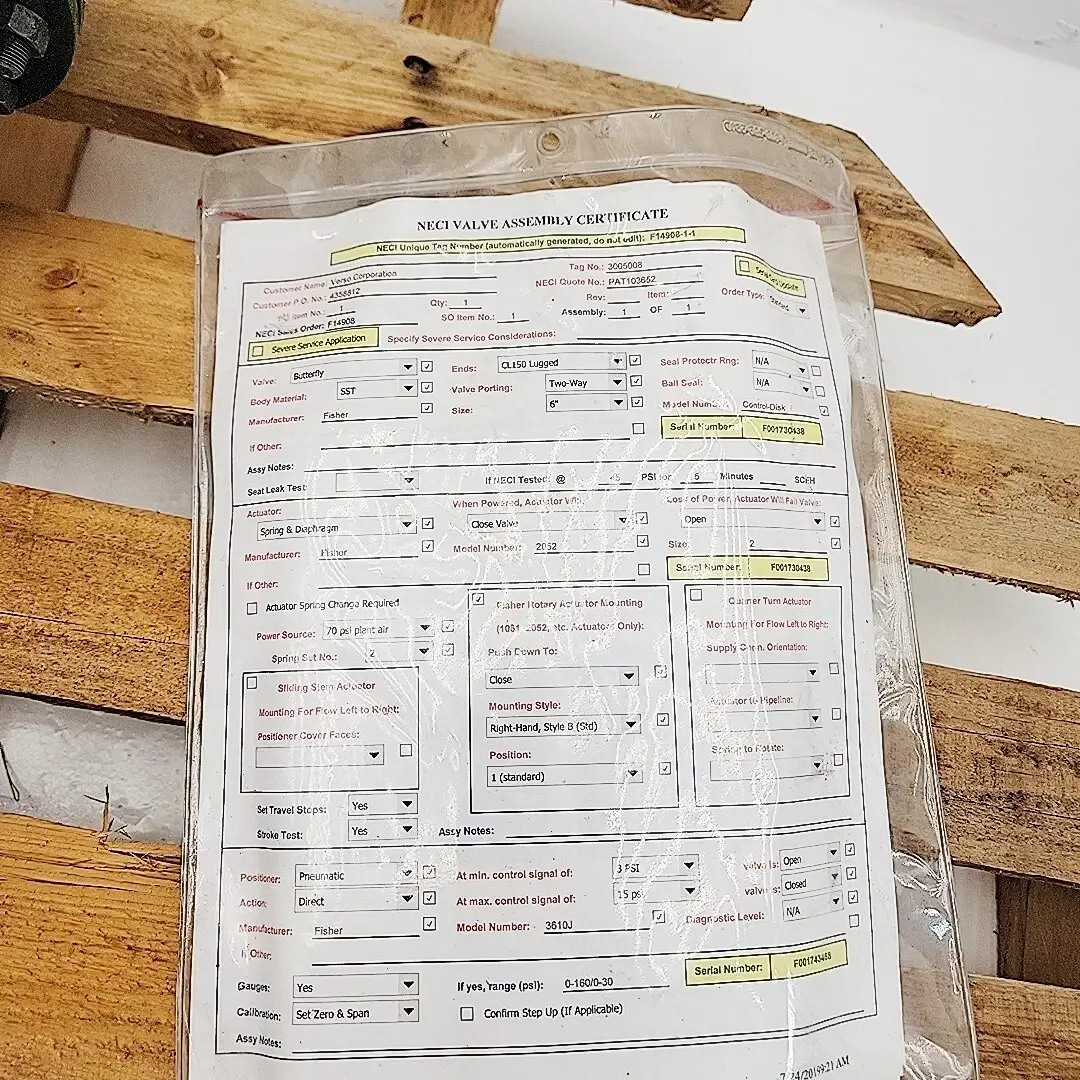 NECI VALVE ASSEMBLY CERTIFICATE
NECI Unique Tag Number (automatically generated, do not edit): F14908-1-1
Customer Name: Verso Corporation Tag No.: 3005008
Customer P.O. No.: 4358812 NECI Quote No.: PAT103652
Item No.: 1 Qty: 1 Rev: Item: Order Type:
NECI Sales Order: F14908 SO Item No.: 1 Assembly: 1 OF 1
Severe Service Application Specify Severe Service Considerations:
Valve: Butterfly Ends: CL150 Lugged Seal Protectr Rng: N/A
Body Material: SST Valve Porting: Two-Way Ball Seal: N/A
Manufacturer: Fisher Size: 6" Model Number: Control-Disk
If Other: Serial Number: F001730438
Assy Notes:
Seat Leak Test: If NECI Tested: @ PSI for 5 Minutes SCFH
Actuator: When Powered, Actuator Will: Loss of Power, Actuator Will Fail Valve:
Spring & Diaphragm Close Valve Open
Manufacturer: Fisher Model Number: 2052 Size: 2
If Other: Serial Number: F001730438
Actuator Spring Change Required Fisher Rotary Actuator Mounting Quarter Turn Actuator
Power Source: 70 psi plant air (1061, 2052, etc. Actuators Only): Mounting For Flow Left to Right:
Spring Set No.: 2 Push Down To: Supply Conn. Orientation:
Sliding Stem Actuator Close
Mounting For Flow Left to Right: Mounting Style: Actuator to Pipeline:
Positioner Cover Faces: Right-Hand, Style B (Std)
Position: Spring to Rotate:
1 (standard)
Set Travel Stops: Yes
Stroke Test: Yes Assy Notes:
Positioner: Pneumatic At min. control signal of: 3 PSI valve is: Open
Action: Direct At max. control signal of: 15 psi valve is: Closed
Manufacturer: Fisher Model Number: 3610J Diagnostic Level: N/A
If Other: Serial Number: F001743468
Gauges: Yes If yes, range (psi): 0-160/0-30
Calibration: Set Zero & Span Confirm Step Up (If Applicable)
Assy Notes:
7/24/20199:21 AM